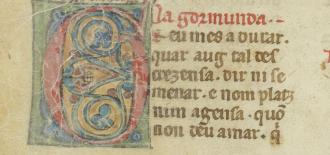 Na gormunda.
eu mes a durar.
quar aug tal des
crezensa. dir ni se
menar. e nom platz
num agensa. quō
non deu amar. q̄